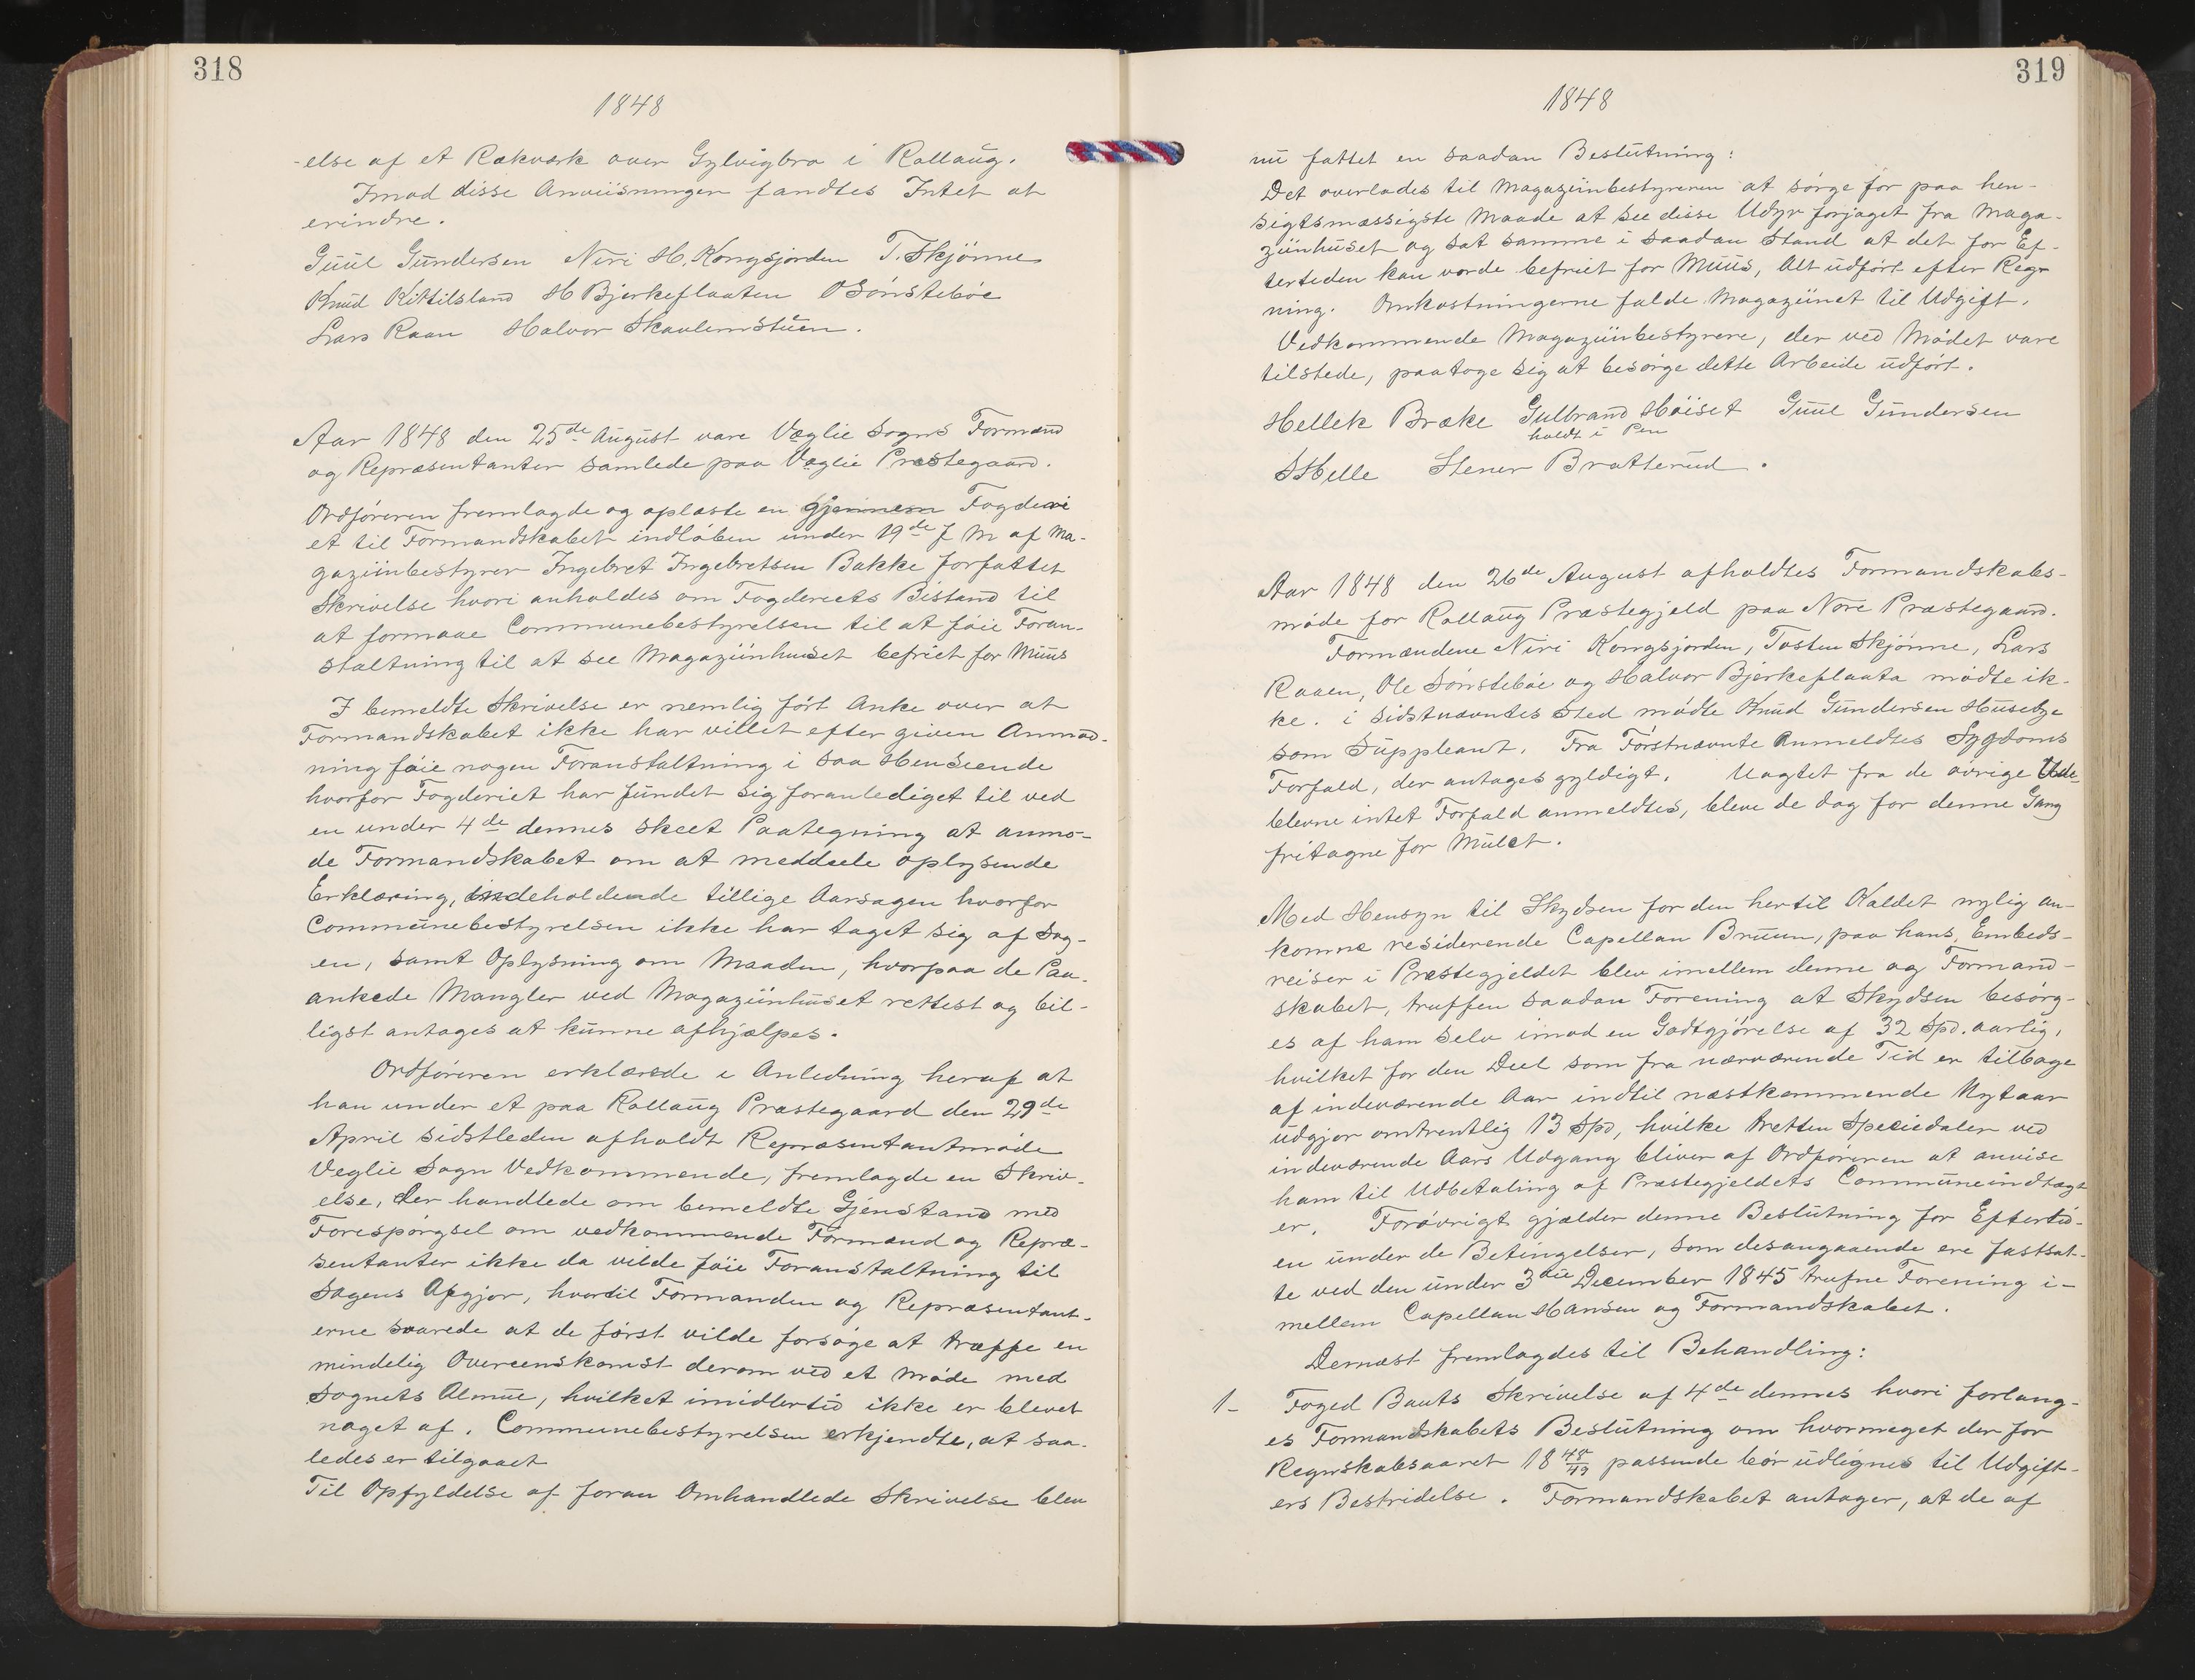 318
1848
-else af et Rækværk over Gylvigbro i Rollaug.
Imod disse Anviisninger fandtes Intet at
erindre.
Guul Gundersen Niri H. Kongsjorden T. Skjönne
Knud Kittilsland H Bjerkeflaaten O Sönsteböe
Lars Raaen Halvor Skavlemstuen.
Aar 1848 den 25de August vare Væglie Sogns Formænd
og Repræsentanter samlede paa Væglie Præstegaard.
Ordföreren fremlagde og oplæste en gjennem Fogderi
et til Formandskabet indlöben under 19de f M af Ma-
gaziinbestyrer Ingebret Ingebretsen Bakke forfattet
Skrivelse hvori anholdes om Fogderiets Bistand til
at formaae Communebestyrelsen til at föie Foran-
staltning til at see Magaziinhuset befriet for Muus
I bemeldte Skrivelse er nemlig fört Anke over at
Formandskabet ikke har villet efter given Anmod-
ning föie nogen Foranstaltning i saa Henseende
hvorfor Fogderiet har fundet sig foranlediget til ved
en under 4de dennes skeet Paategning at anmo-
de Formandskabet om at meddeele oplysende
Erklæring, indeholdende tillige Aarsagen hvorfor
Communebestyrelsen ikke har taget sig af Sag-
en, samt Oplysning om Maaden, hvorpaa de Paa-
ankede Mangler ved Magaziinhuset rettest og bil-
ligst antages at kunne afhjælpes.
Ordföreren erklærede i Anledning heraf at
han under et paa Rollaug Præstegaard den 29de
April sidstleden afholdt Repræsentantmöde
Veglie Sogn Vedkommende, fremlagde en Skriv-
else, der handlede om bemeldte Gjenstand med
Forespörgsel om vedkommende Formænd og Repræ-
sentanter ikke da vilde föie Foranstaltning til
Sagens Afgjör, hvortil Formanden og Repræsentant-
erne svarede at de först vilde forsöge at træffe en
mindelig Overeenskomst derom ved et Möde med
Sognets Almue, hvilket imidlertid ikke er blevet
noget af. Communebestyrelsen erkjendte, at saa-
ledes er tilgaaet
Til Opfyldelse af foran Omhandlede Skrivelse blev
319
1848
nu fattet en saadan Beslutning:
Det overlades til Magaziinbestyreren at sörge for paa hen-
sigtsmæssigste Maade at see disse Udyr forjaget fra Maga-
ziinhuset og sat samme i saadan Stand at det for Ef-
tertiden kan vorde befriet for Muus, Alt udfört efter Reg-
ning. Omkostningerne falde Magaziinet til Udgift.
Vedkommende Magaziinbestyrere, der ved Mödet vare
tilstede, paatoge sig at besörge dette Arbeide udfört.
Hellek Bræke Gulbrand Höiset Guul Gundersen
holdt i Pen
SHelle Stener Bratterud.
Aar 1848 den 26de August afholdtes Formandskabs-
möde for Rollaug Præstegjeld paa Nore Præstegaard.
Formændene Niri Kongsjorden, Tosten Skjönne, Lars
Raaen, Ole Sönsteböe og Halvor Bjerkeflaata mödte ik-
ke. i Sidstnævntes Sted mödte Knud Gundersen Huseby
som Suppleant. Fra Förstnævnte Anmeldtes Sygdoms
Forfald, der antages gyldigt. Uagtet fra de övrige Ude-
blevne intet Forfald anmeldtes, bleve de dog for denne Gang
fritagne for Mulct.
Med Hensyn til Skydsen for den hertil Kaldet nylig an-
komne residerende Capellan Bruun, paa hans Embeds-
reiser i Præstegjeldet blev imellem denne og Formand-
skabet, truffen saadan Forening at Skydsen besörg-
es af ham selv imod en Godtgjörelse af 32 Spd. aarlig,
hvilket for den Deel som fra nærværende Tid er tilbage
af indeværende Aar indtil næstkommende Nytaar
udgjör omtrentlig 13 Spd, hvilke tretten Speciedaler ved
indeværende Aars Udgang bliver af Ordföreren at anvise
ham til Udbetaling af Præstegjeldets Communeindtægt
er. Forövrigt gjælder denne Beslutning for Eftertid-
en under de Betingelser, som desangaaende ere fastsat-
te ved den under 3die December 1845 trufne Forening i-
mellem Capellan Hansen og Formandskabet.
Dernæst fremlagdes til Behandling:
1- Foged Bauts Skrivelse af 4de dennes hvori forlang-
es Formandskabets Beslutning om hvormeget der for
Regnskabsaaret 18 48/49 passende bör udlignes til Udgift-
ers Bestridelse. Formandskabet antager, at de af